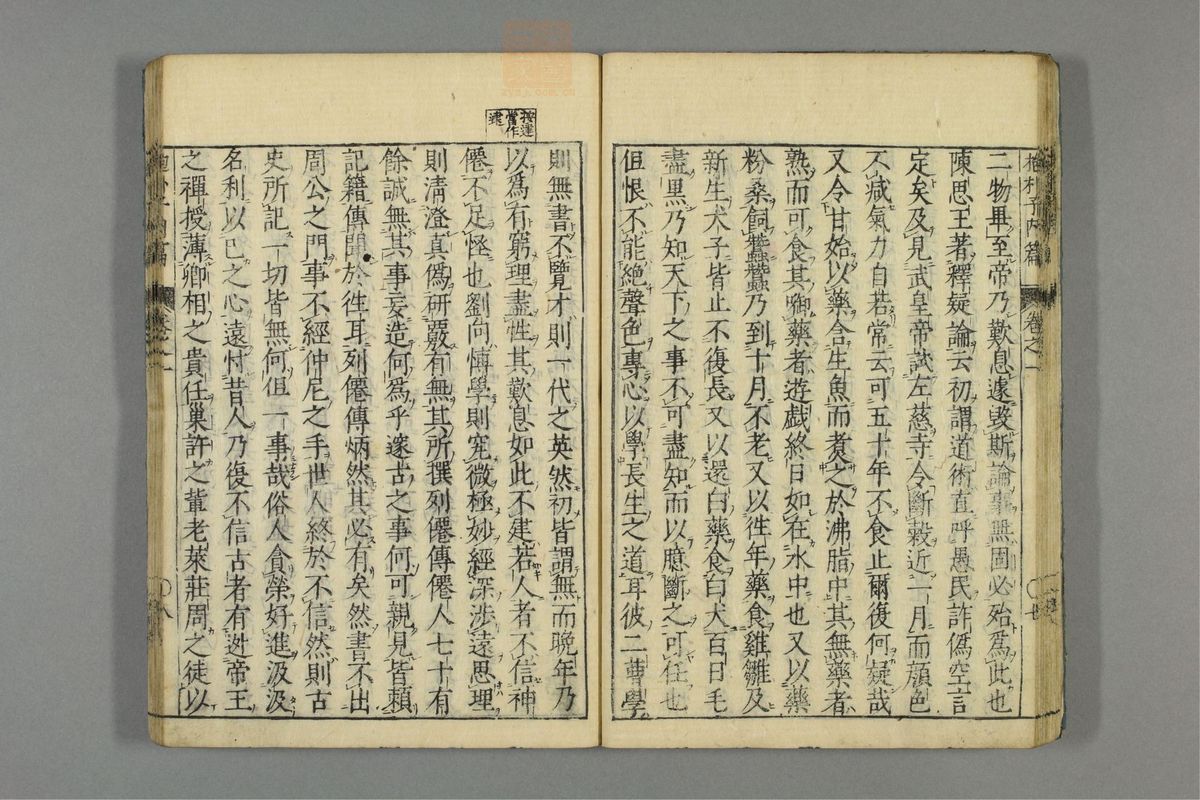 抱朴子內篇 卷之一
二物畢至帝乃歎息遽毀斯論事無固必殆爲此也
陳思王著釋疑論云初謂道術直呼愚民詐僞空言
定矣及見武皇帝試左慈等令斷穀近一月而顔色
不减氣力自若常云可五十年不食止爾復何疑哉
又令甘始以藥含生魚而煮之於沸脂中其無藥者
熟而可食其啣藥者遊戱終日如在水中也又以藥
粉桑飼蠶蠶乃到十月不老又以徃年藥食雞雛及
新生犬子皆止不復長又以還白藥食白犬百日毛
盡黑乃知天下之事不可盡知而以臆斷之可任也
但恨不能絶聲色專心以學長生之道耳彼二曹學
則無書不覽才則一代之英然初皆謂無而晩年乃
以爲有窮理盡性其歎息如此不逮若人者不信神
僊不足怪也劉向愽學則究微極妙經深涉遠思理
則清澄真僞研覈有無其所撰列僊傳僊人七十有
餘誠無其事妄造何爲乎邃古之事何可親見皆賴
記籍傳聞於徃耳列僊傳炳然其必有矣然書不出
周公之門事不經仲尼之手世人終於不信然則古
史所記一切皆無何但一事哉俗人貪榮好進汲汲
名利以已之心遠忖昔人乃復不信古者有逃帝王
之禪授薄卿相之貴任巢許之軰老萊莊周之徒以
八